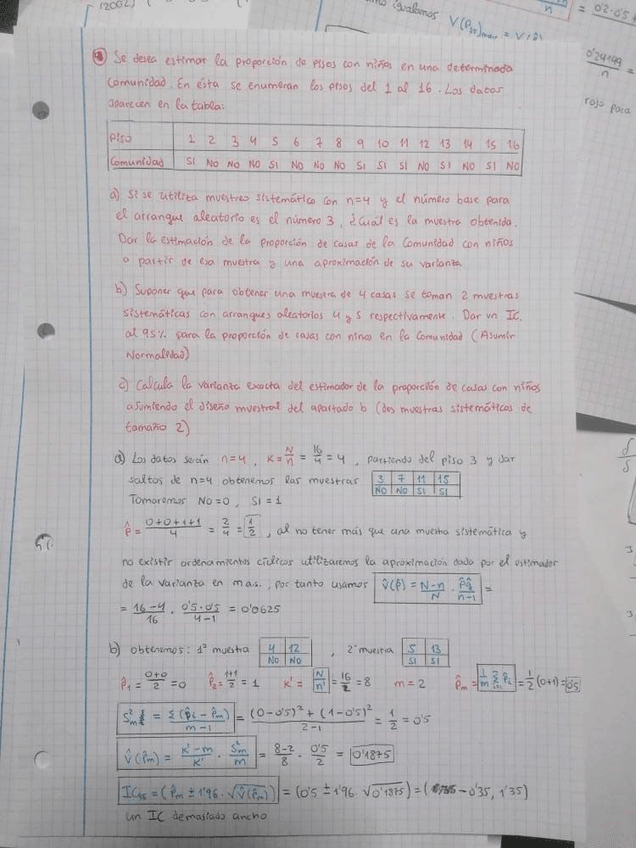 12002)
igualamos V(P̂st)max = V(P̂)
n
= 0'2·0'5
0'24149
n
rojo para
Se desea estimar la proporción de pisos con niños en una determinada
Comunidad. En ésta se enumeran los pisos del 1 al 16. Los datos
aparecen en la tabla:
PISO 1 2 3 4 5 6 7 8 9 10 11 12 13 14 15 16
Comunidad SI NO NO NO SI NO NO NO SI SI SI NO SI NO SI NO
a) Si se utiliza muestreo sistemático con n=4 y el número base para
el arranque aleatorio es el número 3, ¿Cuál es la muestra obtenida.
Dar la estimación de la proporción de casas de la Comunidad con niños
a partir de esa muestra y una aproximación de su varianza
b) Suponer que para obtener una muestra de 4 casas se toman 2 muestras
sistemáticas con arranques aleatorios 4 y 5 respectivamente. Dar un IC.
al 95% para la proporción de casas con niños en la Comunidad (Asumir
Normalidad)
c) Calcula la varianza exacta del estimador de la proporción de casas con niños
asumiendo el diseño muestral del apartado b (dos muestras sistemáticas de
tamaño 2)
a) Los datos serán n=4, K=N/n = 16/4 = 4, partiendo del piso 3 y dar
saltos de n=4 obtenemos las muestras 3 7 11 15
NO NO SI SI
Tomaremos NO=0, SI=1
p̂ = (0+0+1+1)/4 = 2/4 = 1/2, al no tener más que una muestra sistemática y
no existir ordenamientos cíclicos utilizaremos la aproximación dada por el estimador
de la varianza en m.a.s., por tanto usamos V̂(p̂) = (N-n)/N · p̂q̂/(n-1) =
= (16-4)/16 · (0'5·0'5)/(4-1) = 0'0625
b) obtenemos: 1ª muestra 4 12 , 2ª muestra 5 13
NO NO SI SI
p̂1 = (0+0)/2 = 0 p̂2 = (1+1)/2 = 1 K' = N/n' = 16/2 = 8 m = 2 p̂m = 1/m Σ p̂i = 1/2 (0+1) = 0'5
S²m = Σ(p̂i - p̂m)²/(m-1) = ((0-0'5)² + (1-0'5)²)/(2-1) = 1/2 = 0'5
V̂(p̂m) = (K'-m)/K' · S²m/m = (8-2)/8 · 0'5/2 = 0'1875
IC95 = (p̂m ± 1'96 · √V̂(p̂m)) = (0'5 ± 1'96 · √0'1875) = (-0'35, 1'35)
un IC demasiado ancho